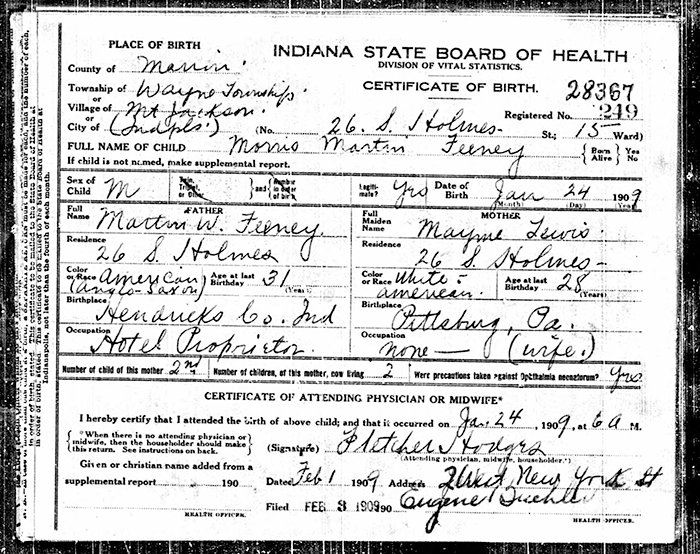 PLACE OF BIRTH
INDIANA STATE BOARD OF HEALTH
DIVISION OF VITAL STATISTICS.
County of Marrin
CERTIFICATE OF BIRTH.
28367
Township of Wayne Township
or
Village of Mt Jackson
Registered No. 249
or
City of (Indpls.) (No. 26. S. Holmes St.; 15 Ward)
FULL NAME OF CHILD Morris Martin Feeney { Born Alive } Yes No
If child is not named, make supplemental report.
Sex of Child M Twin, Triplet, or Other { and } Number in order of birth Legitimate? Yes Date of Birth Jan 24 1909
(Month) (Day) (Year)
FATHER
Full Name Martin W. Feeney
MOTHER
Full Maiden Name Mayme Lewis
Residence 26 S. Holmes
Residence 26 S. Holmes
Color or Race American (Anglo-Saxon) Age at last Birthday 31 (Years)
Color or Race White - American. Age at last Birthday 28 (Years)
Birthplace Hendricks Co. Ind
Birthplace Pittsburg, Pa.
Occupation Hotel Proprietor.
Occupation none — (wife.)
Number of child of this mother 2nd Number of children, of this mother, now living 2 Were precautions taken against Ophthalmia neonatorum? Yes
CERTIFICATE OF ATTENDING PHYSICIAN OR MIDWIFE*
I hereby certify that I attended the birth of above child; and that it occurred on Jan. 24, 1909, at 6 a M.
{ *When there is no attending physician or midwife, then the householder should make this return. See instructions on back. }
(Signature) Fletcher Hodges
(Attending physician, midwife, householder.*)
Given or christian name added from a
supplemental report 190
Dated Feb 1 1909 Address West New York St
Filed FEB 3 1909 190 Eugene
HEALTH OFFICER.
HEALTH OFFICER.